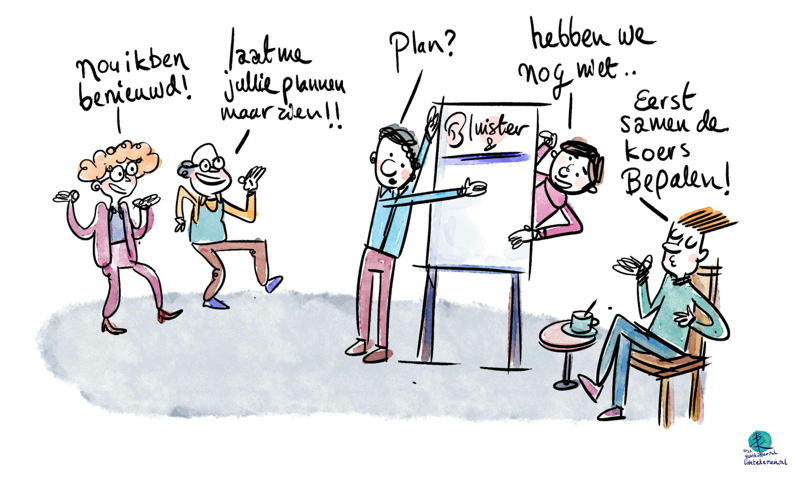 Nou ik ben
benieuwd!
laat me
jullie plannen
maar zien!!
Plan?
Bluister
&
hebben we
nog niet..
Eerst
samen de
koers
Bepalen!